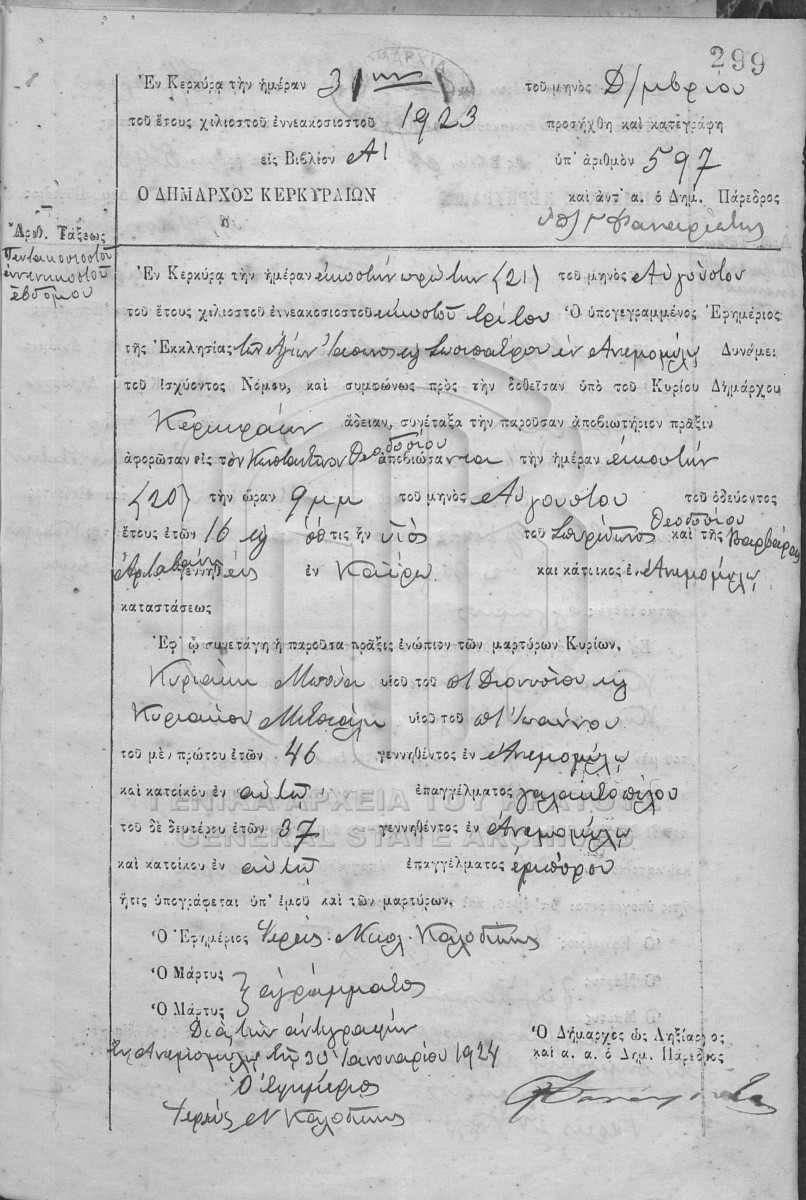 299
Ἐν Κερκύρᾳ τὴν ἡμέραν 31ην τοῦ μηνὸς Δ/μβρίου
τοῦ ἔτους χιλιοστοῦ ἐννεακοσιοστοῦ 1923 προσήχθη καὶ κατεγράφη
εἰς Βιβλίον Α1 ὑπ' ἀριθμὸν 597
Ο ΔΗΜΑΡΧΟΣ ΚΕΡΚΥΡΑΙΩΝ καὶ ἀντ' α. ὁ Δημ. Πάρεδρος
Ἀριθ. Τάξεως
Πεντακοσιοστοῦ
ἐννενηκοστοῦ
ἑβδόμου
Ἐν Κερκύρᾳ τὴν ἡμέραν εἰκοστὴν πρώτην (21) τοῦ μηνὸς Αὐγούστου
τοῦ ἔτους χιλιοστοῦ ἐννεακοσιοστοῦ εἰκοστοῦ τρίτου Ὁ ὑπογεγραμμένος Ἐφημέριος
τῆς Ἐκκλησίας τῶν Ἁγίων Ἰάσωνος κ Σωσιπάτρου ἐν Ἀνεμομύλῳ Δυνάμει
τοῦ ἰσχύοντος Νόμου, καὶ συμφώνως πρὸς τὴν δοθεῖσαν ὑπὸ τοῦ Κυρίου Δημάρχου
Κερκυραίων ἄδειαν, συνέταξα τὴν παροῦσαν ἀποβιωτήριον πρᾶξιν
ἀφορῶσαν εἰς τὸν Κωνσταντῖνον Θεοδοσίου ἀποβιώσαντα τὴν ἡμέραν εἰκοστὴν
(20) τὴν ὥραν 9 μμ τοῦ μηνὸς Αὐγούστου τοῦ ὁδεύοντος
ἔτους ἐτῶν 16 κ ὅστις ἦν υἱὸς τοῦ Σπυρίδωνος Θεοδοσίου καὶ τῆς Βαρβάρας
γεννηθεὶς ἐν Καΐρῳ καὶ κάτοικος ἐν Ἀνεμομύλῳ
καταστάσεως
Ἐφ' ᾧ συνετάγη ἡ παροῦσα πρᾶξις ἐνώπιον τῶν μαρτύρων Κυρίων,
Κυριάκη υἱοῦ τοῦ πτ Διονυσίου κ
Κυριάκου υἱοῦ τοῦ πτ Ἰωάννου
τοῦ μὲν πρώτου ἐτῶν 46 γεννηθέντος ἐν Ἀνεμομύλῳ
καὶ κατοίκου ἐν αὐτῷ ἐπαγγέλματος γαλακτοπώλου
τοῦ δὲ δευτέρου ἐτῶν 37 γεννηθέντος ἐν Ἀνεμομύλῳ
καὶ κατοίκου ἐν αὐτῷ ἐπαγγέλματος ἐμπόρου
ἥτις ὑπογράφεται ὑπ' ἐμοῦ καὶ τῶν μαρτύρων.
ΓΕΝΙΚΑ ΑΡΧΕΙΑ ΤΟΥ ΚΡΑΤΟΥΣ
GENERAL STATE ARCHIVES
Ὁ Ἐφημέριος Ἱερεὺς Νικολ. Καλοδίκης
Ὁ Μάρτυς
Ὁ Μάρτυς } ἀγράμματος
Διὰ τὴν ἀντιγραφὴν
Ἐν Ἀνεμομύλῳ τῇ 30 Ἰανουαρίου 1924
Ὁ Ἐφημέριος
Ἱερεὺς Ν Καλοδίκης
Ὁ Δήμαρχος ὡς Ληξίαρχος
καὶ α. α. ὁ Δημ. Πάρεδρος